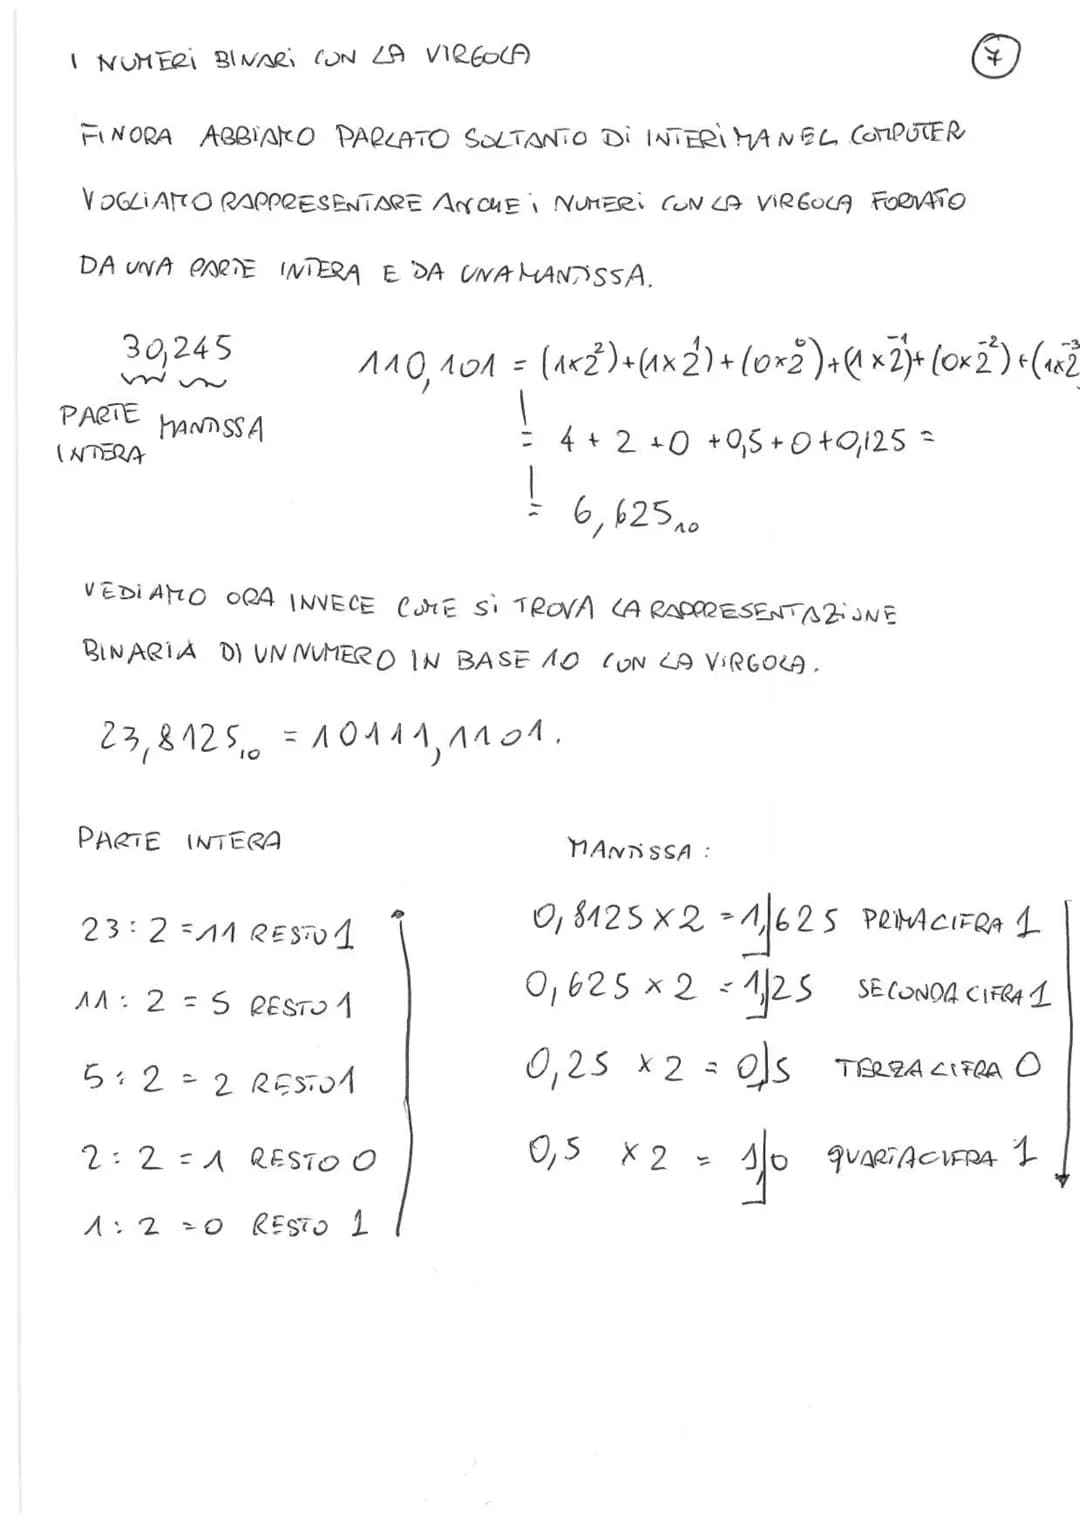 I NUMERI BINARI CON LA VIRGOLA
7
FINORA ABBIAMO PARLATO SOLTANTO DI INTERI MA NEL COMPUTER
VOGLIAMO RAPPRESENTARE ANCHE I NUMERI CON LA VIRGOLA FORMATO
DA UNA PARTE INTERA E DA UNA MANTISSA.
30,245
PARTE INTERA
MANTISSA
110,101 = (1x2²)+(1x2¹)+(0x2⁰)+(1x2⁻¹)+(0x2⁻²)+(1x2⁻³
= 4 + 2 + 0 + 0,5 + 0 + 0,125 =
= 6,625₁₀
VEDIAMO ORA INVECE COME SI TROVA LA RAPPRESENTAZIONE
BINARIA DI UN NUMERO IN BASE 10 CON LA VIRGOLA.
23,8125₁₀ = 10111,1101.
PARTE INTERA
23 : 2 = 11 RESTO 1
11 : 2 = 5 RESTO 1
5 : 2 = 2 RESTO 1
2 : 2 = 1 RESTO 0
1 : 2 = 0 RESTO 1
MANTISSA :
0,8125 x 2 = 1,625 PRIMA CIFRA 1
0,625 x 2 = 1,25 SECONDA CIFRA 1
0,25 x 2 = 0,5 TERZA CIFRA 0
0,5 x 2 = 1,0 QUARTA CIFRA 1